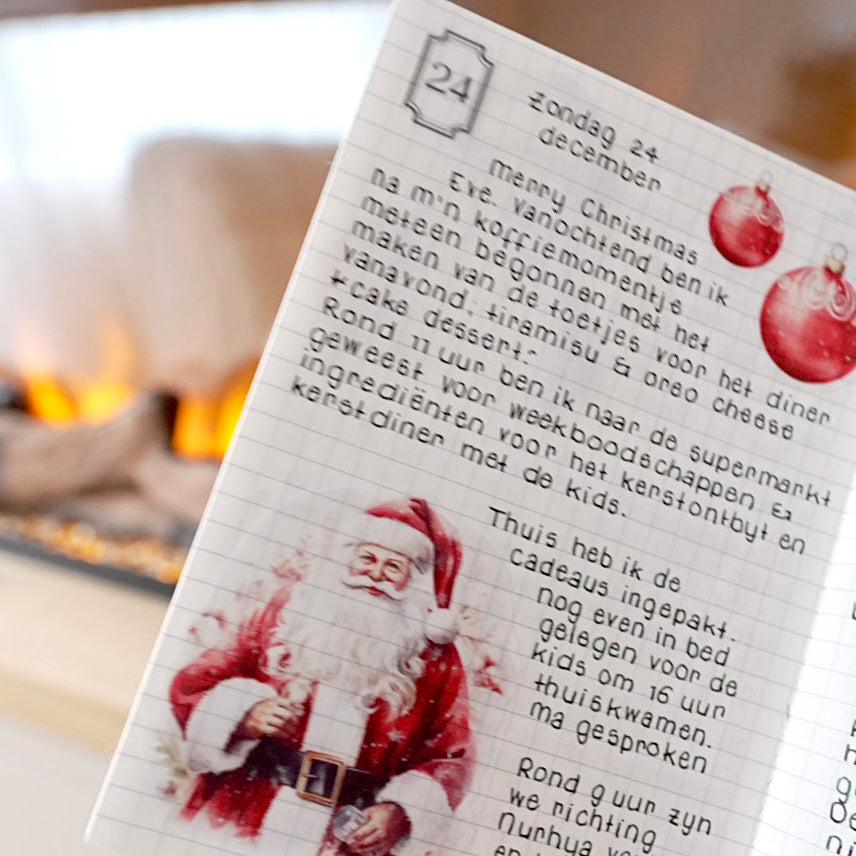 24
zondag 24
december
merry Christmas
Eve. vanochtend ben ik
na m'n koffiemomentje
meteen begonnen met het
maken van de toetjes voor het diner
vanavond; tiramisu & oreo cheese
+cake dessert.
Rond 11 uur ben ik naar de supermarkt
geweest voor weekboodschappen &
ingrediënten voor het kerstontbyt en
kerstdiner met de kids.
Thuis heb ik de
cadeaus ingepakt.
nog even in bed
gelegen voor de
kids om 16 uur
thuiskwamen.
ma gesproken
Rond 9 uur zyn
we richting
Nurhya
en